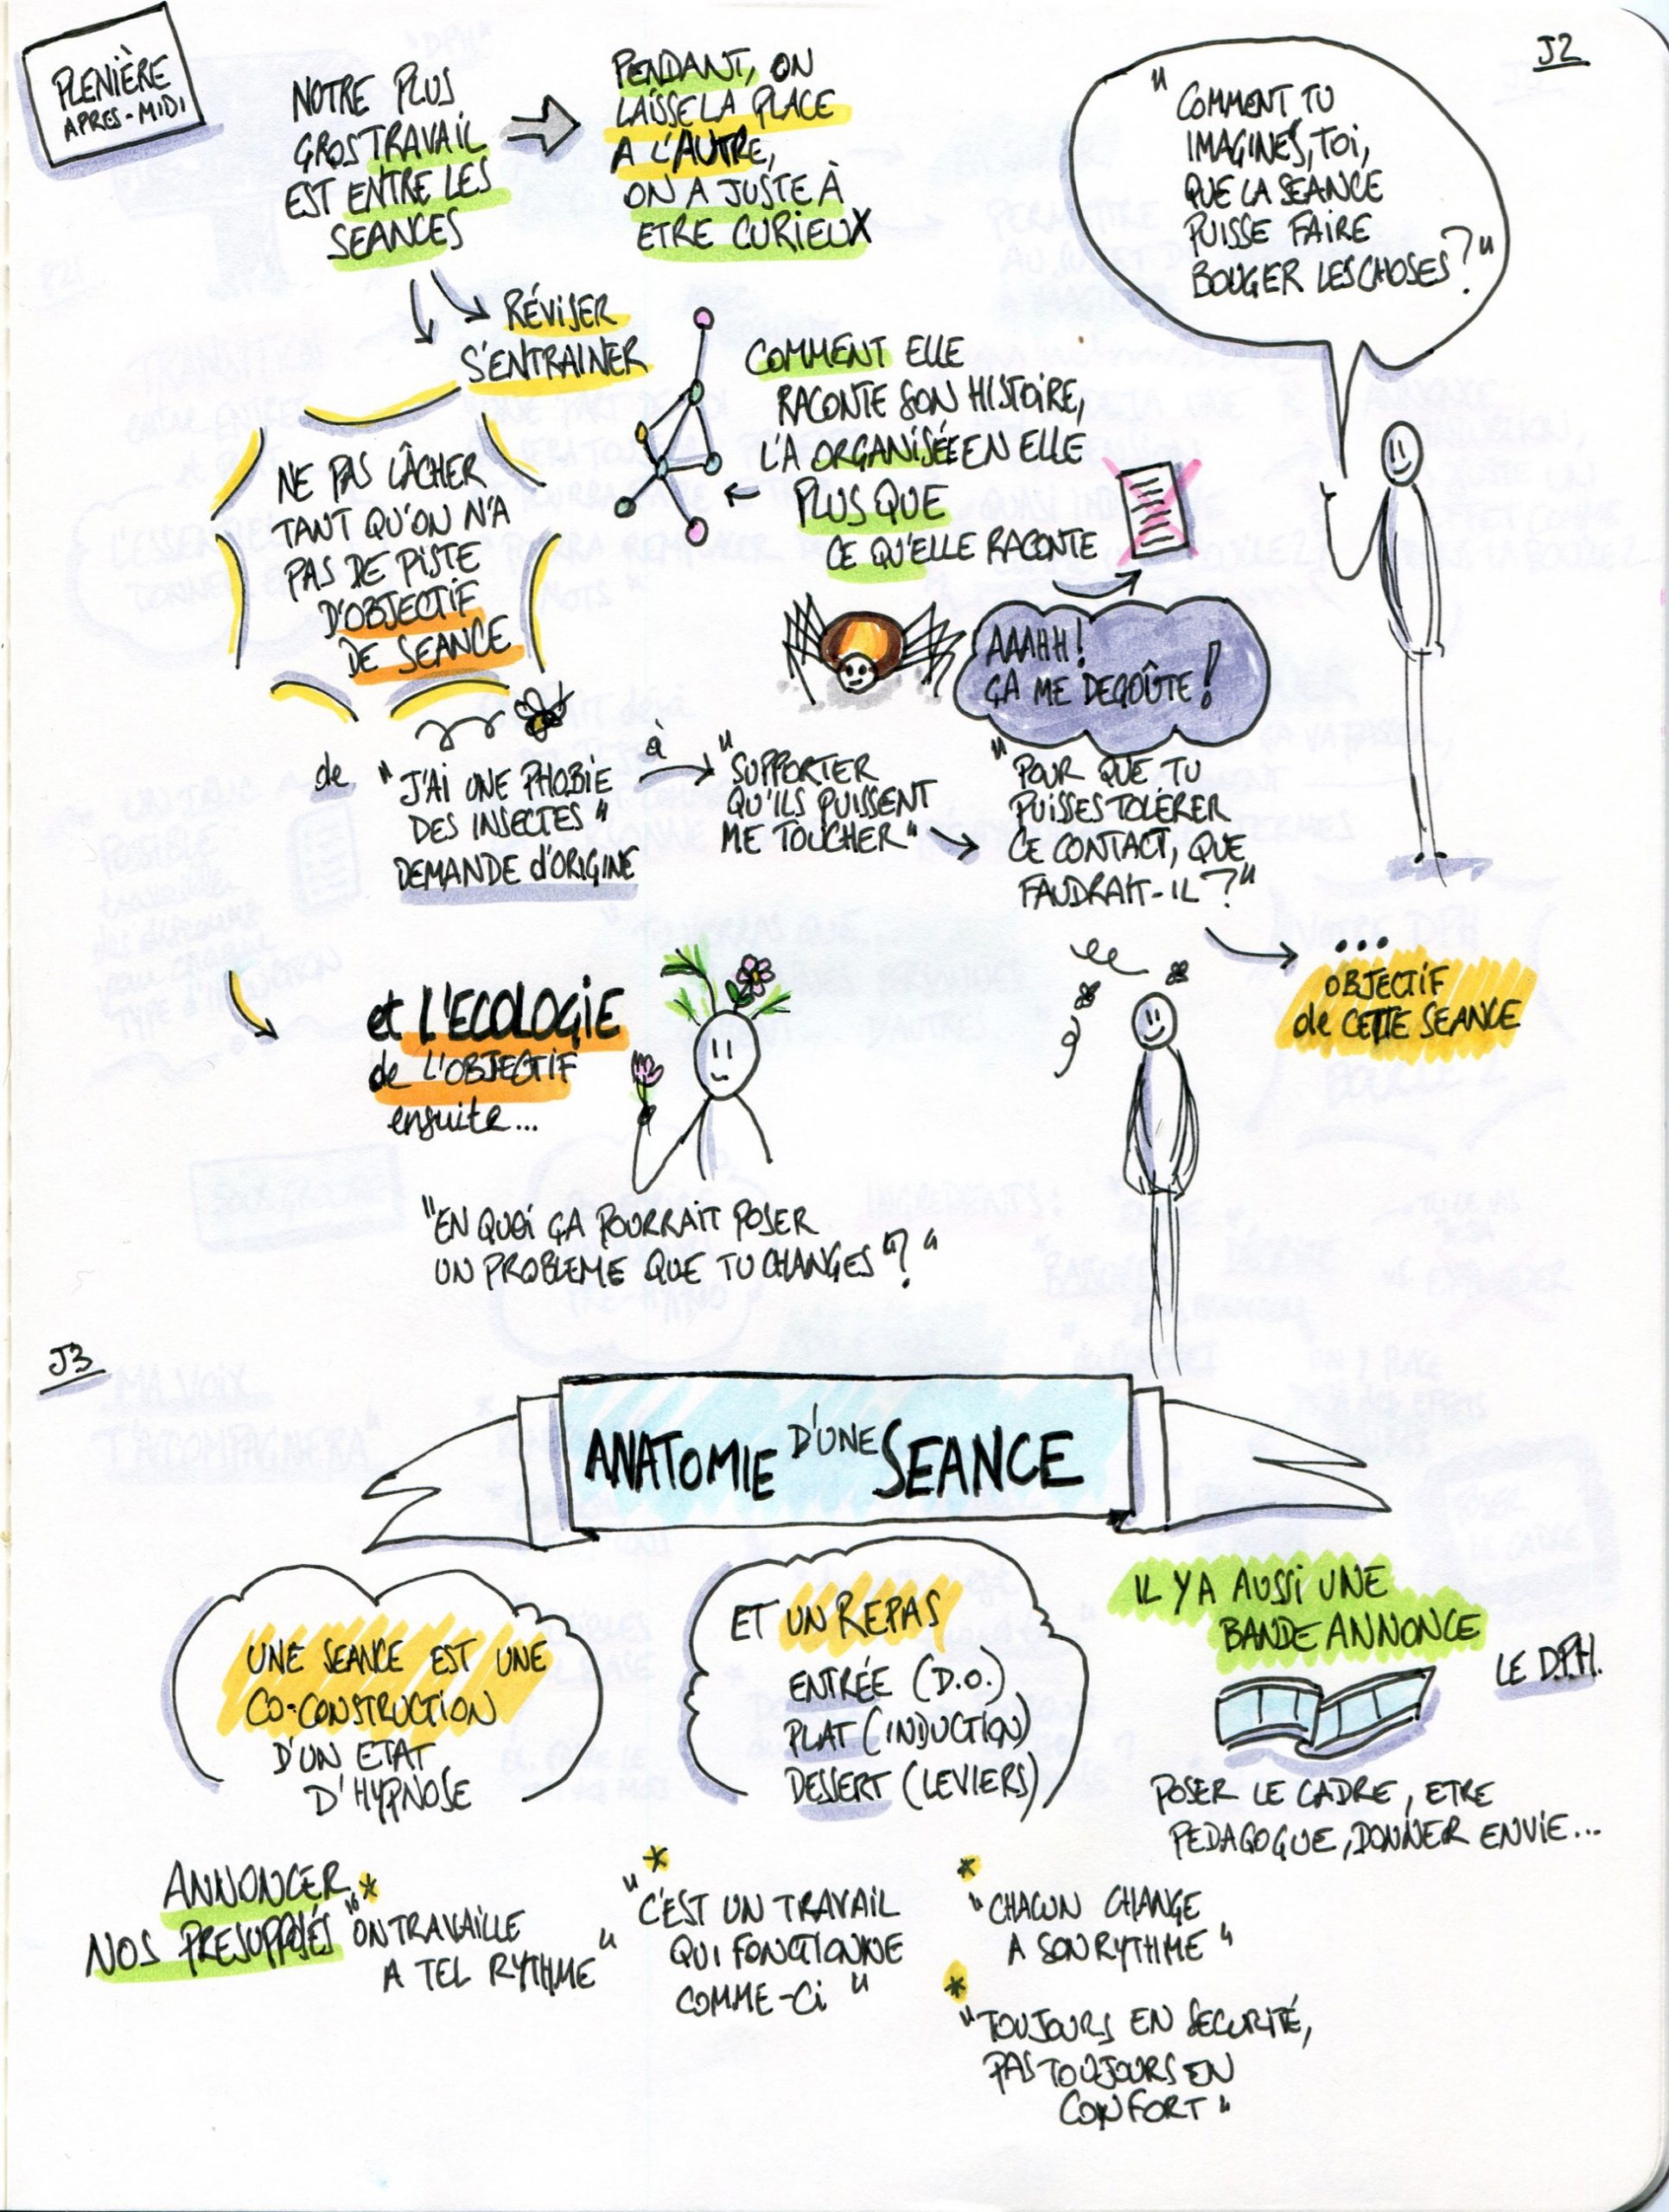 PLENIÈRE
APRES-MIDI
J2
NOTRE PLUS
GROS TRAVAIL
EST ENTRE LES
SEANCES
PENDANT, ON
LAISSE LA PLACE
A L'AUTRE,
ON A JUSTE À
ETRE CURIEUX
"COMMENT TU
IMAGINES, TOI,
QUE LA SEANCE
PUISSE FAIRE
BOUGER LES CHOSES ?"
RÉVISER
S'ENTRAINER
COMMENT ELLE
RACONTE SON HISTOIRE,
L'A ORGANISÉE EN ELLE
PLUS QUE
CE QU'ELLE RACONTE
NE PAS LÂCHER
TANT QU'ON N'A
PAS DE PISTE
D'OBJECTIF
DE SEANCE
AAAHH !
ÇA ME DEGOÛTE !
de "J'AI UNE PHOBIE
DES INSECTES"
DEMANDE d'ORIGINE
à
"SUPPORTER
QU'ILS PUISSENT
ME TOUCHER"
"POUR QUE TU
PUISSES TOLÉRER
CE CONTACT, QUE
FAUDRAIT-IL ?"
...
OBJECTIF
de CETTE SEANCE
et L'ECOLOGIE
de L'OBJECTIF
ensuite...
"EN QUOI ÇA POURRAIT POSER
UN PROBLEME QUE TU CHANGES "? "
J3
ANATOMIE D'UNE SEANCE
UNE SEANCE EST UNE
CO-CONSTRUCTION
D'UN ETAT
D'HYPNOSE
ET UN REPAS
ENTRÉE (D.O.)
PLAT (INDUCTION)
DESSERT (LEVIERS)
IL Y A AUSSI UNE
BANDE ANNONCE
LE D.P.H.
POSER LE CADRE, ETRE
PEDAGOGUE, DONNER ENVIE...
ANNONCER
NOS PRESUPPOSÉS
* "ON TRAVAILLE
A TEL RYTHME"
* "C'EST UN TRAVAIL
QUI FONCTIONNE
COMME-Ci"
* "CHACUN CHANGE
A SON RYTHME"
* "TOUJOURS EN SECURITÉ,
PAS TOUJOURS EN
CONFORT"